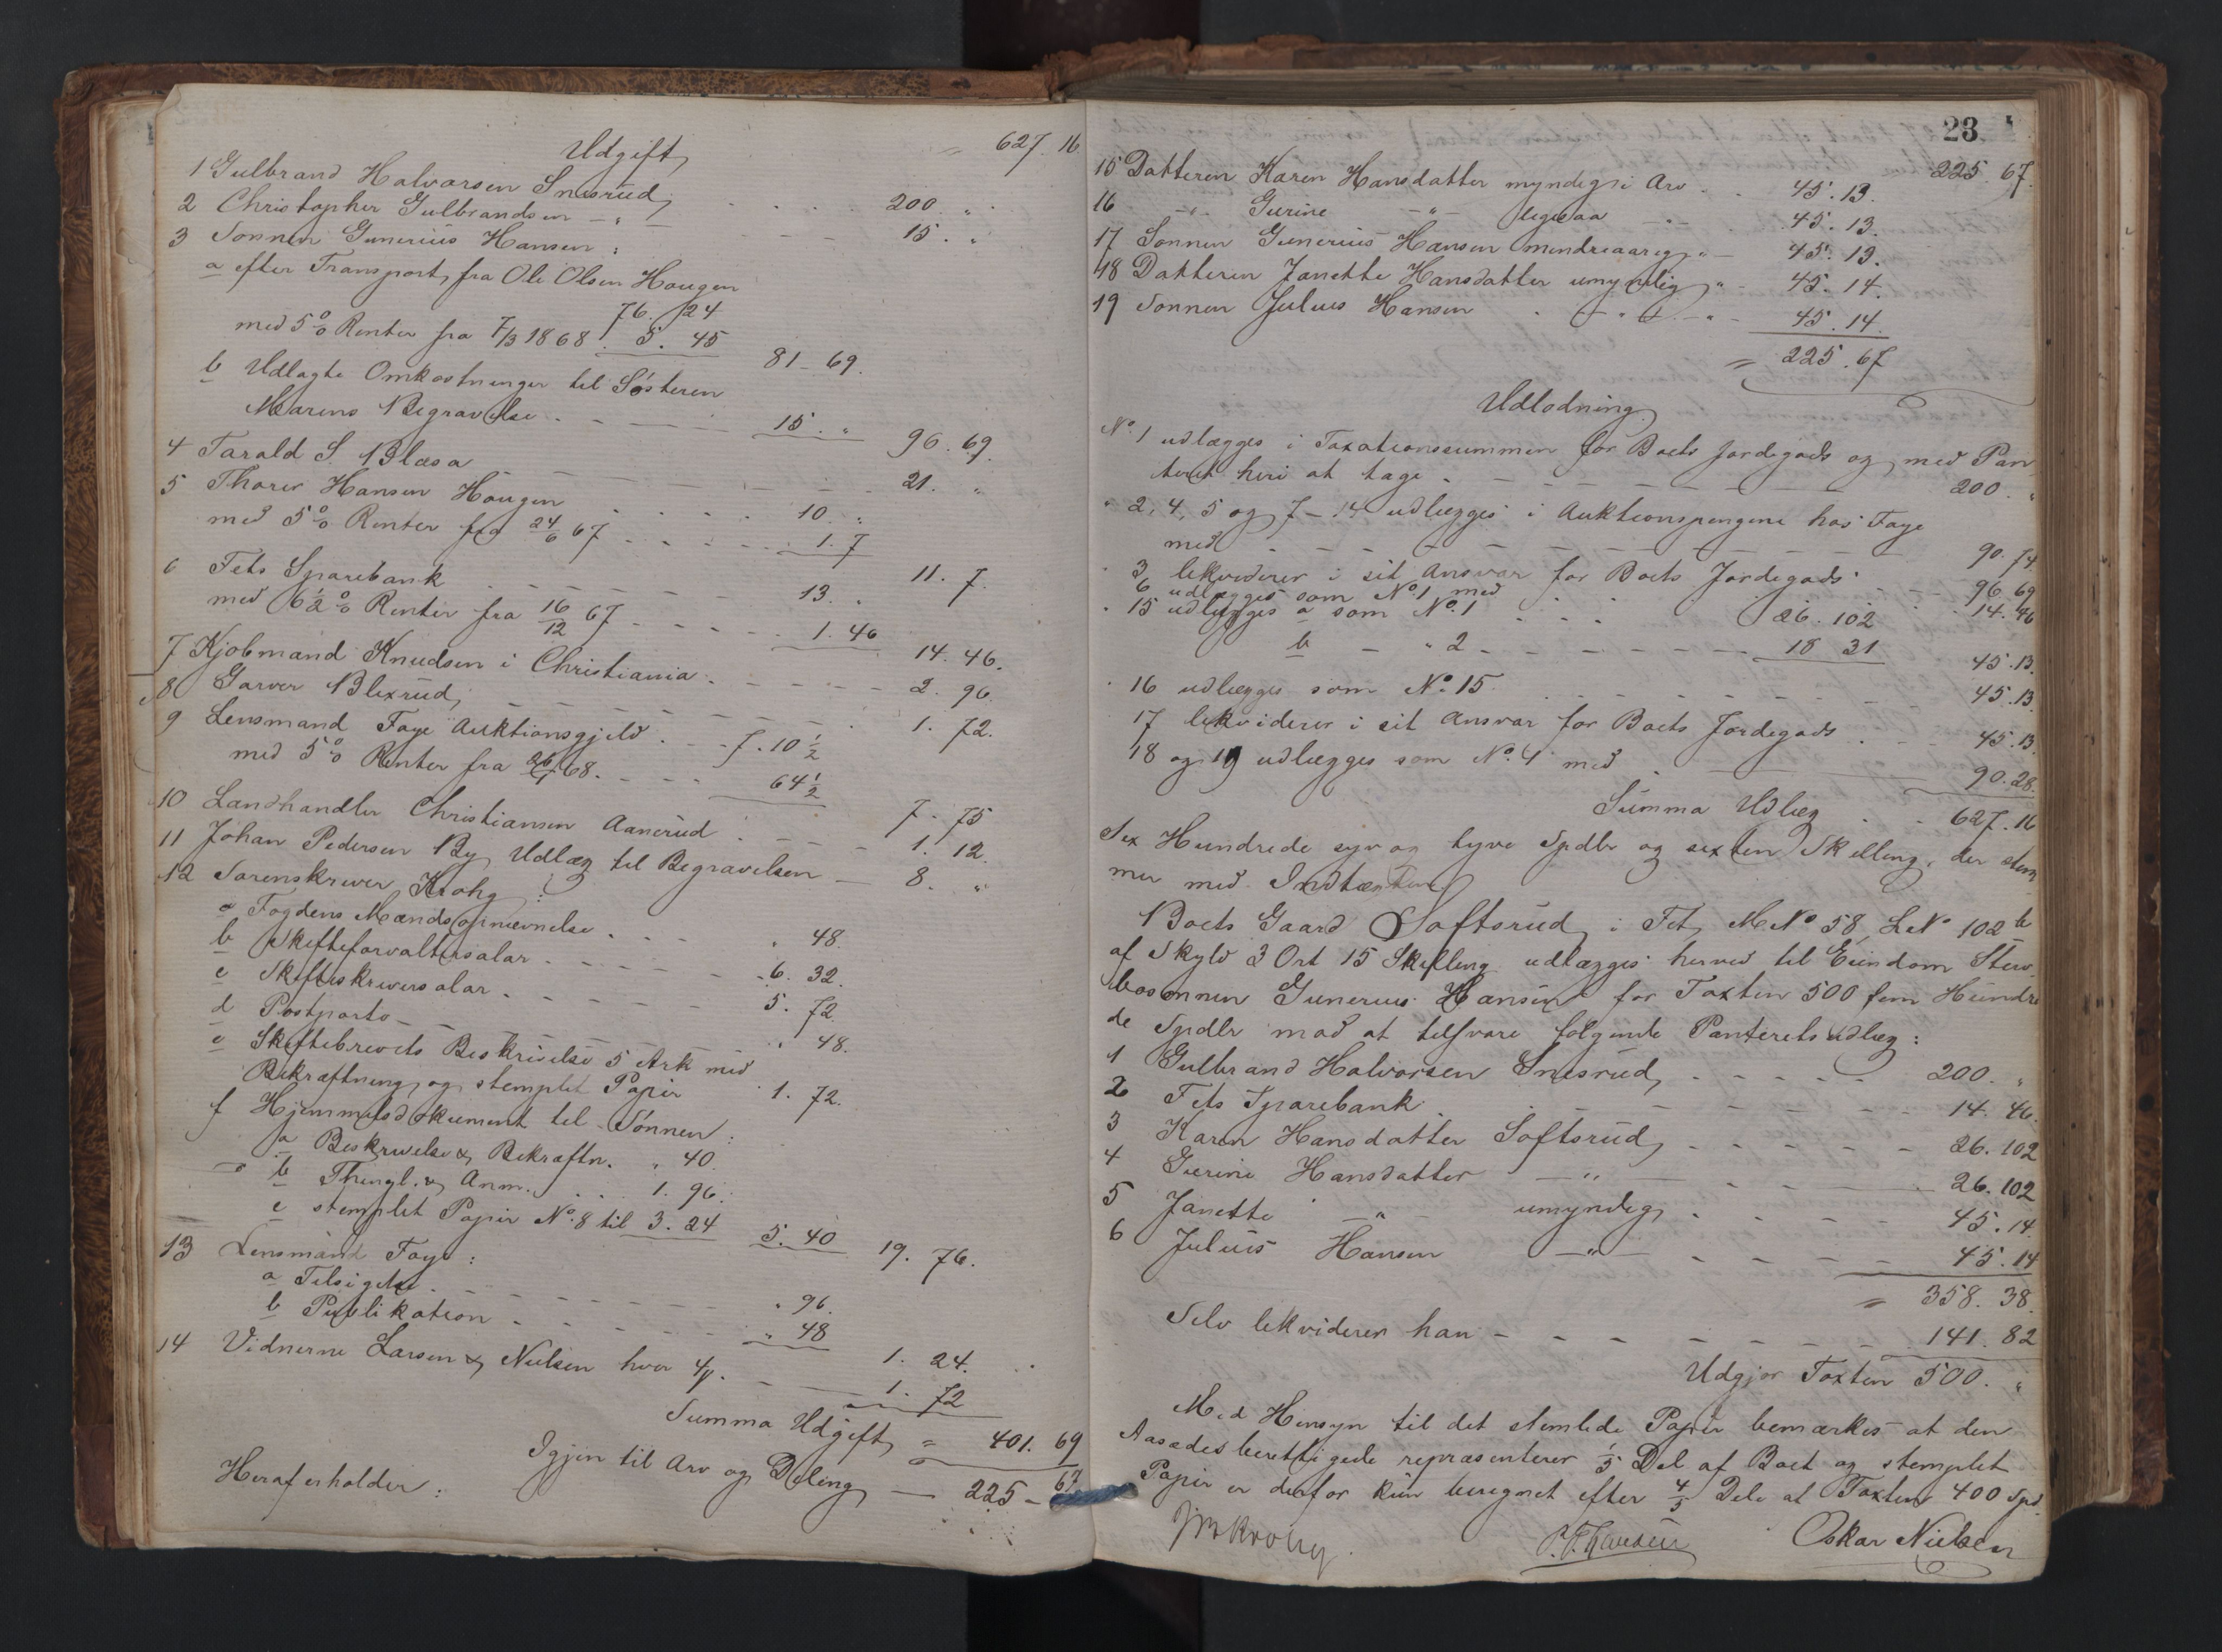 Udgift = 627. 16
1 Gulbrand Halvorsen Snesrud . . . . 200. "
2 Christopher Gulbrandsen — " — — — 15. "
3 Sønnen Gunerius Hansen :
a efter Transport fra Ole Olsen Hougen 76. 24
med 5% Renter fra 7/3 1868 5. 45 81 - 69.
b Udlagte Omkostninger til Søsteren
Marens Begravelse . — — — 15. " 96. 69.
4 Tarald S. Blæsa — — — — 21. "
5 Thorer Hansen Hougen . . . . 10. "
med 5% Renter fra 24/6 67 . . . . 1. 7 11. 7.
6 Fets Sparebank . — — — — 13. "
med 6 1/2 % Renter fra 16/12 67 — — — 1. 46 14. 46.
7 Kjøbmand Knudsen i Christiania . — — — 2. 96
8 Garver Blixrud — — — — — 1. 72.
9 Lensmand Faye Auktionsgjeld . — - 7. 10 1/2
med 5% Renter fra 68. — — — 64 1/2 7. 75
10 Landhandler Christiansen Aanerud . — — 1. 12.
11 Johan Pedersen By Udlæg til Begravelsen — 8. "
12 Sorenskriver Krohg :
a Fogdens Mændsopnævnelse . . . " 48.
b Skifteforvaltersalar . — — — - 6. 32.
c Skifteskriversalar . — — — — 5. 72.
d Postporto — — — — " 48.
e Skiftebrevets Beskrivelse 5 Ark med
Bekræftning og stemplet Papir 1. 72.
f Hjemmelsdokument til Sønnen :
a Beskrivelse & Bekræftn. " 40.
b Thingl. & Anm. . . . 1. 96.
c stemplet Papir No. 8 til 3. 24 5. 40 19. 76.
13 Lensmand Faye :
a Tilsigelse . — — — — " 96.
b Publikation . — — — — " 48 1. 24.
14 Vidnerne Larsen & Nielsen hver . — — 1. 72
Summa Udgift = 401. 69
Igjen til Arv og Deling — 225 - 67
Heraf erholder :
23
225. 67.
15 Datteren Karen Hansdatter myndig i Arv . . 45. 13.
16 — " — Gurine — " — ligesaa — " — 45. 13.
17 Sønnen Gunerius Hansen mindreaarig " — 45. 13.
18 Datteren Janette Hansdatter umyndig " — 45. 14.
19 Sønnen Julius Hansen . — " — " — 45. 14.
= 225. 67
Udlodning
No. 1 udlægges i Taxationssummen for Boets Jordegods og med Pan
teret heri at tage . — — — — — — 200. "
" 2, 4, 5 og 7 - 14 udlægges i Auktionspengene hos Faye
med — — — — — — — 90. 74
" 3 likviderer i sit Ansvar for Boets Jordegods . — — 96. 69
6 udlægges som No 1 med . . . 14. 46
" 15 udlægges a som No. 1 . . . 26. 102
b — " 2 — — — — 18 31 45. 13.
" 16 udlægges som No. 15 . — — — — — 45. 13.
17 likviderer i sit Ansvar for Boets Jordegods . — — 45. 13.
18 og 19 udlægges som No. 1 med . — — — 90. 28.
Summa Udlæg . - 627. 16
Sex Hundrede syv og tyve Spdlr og sexten Skilling, der stem
mer med Indtægten
Boets Gaard Softsrud i Fet, M No 58, L No 102 b
af Skyld 3 Ort 15 Skilling udlægges herved til Eiendom Sterv
bosønnen Gunerius Hansen for Taxten 500 fem Hundre
de Spdlr mod at tilsvare følgende Panteretsudlæg :
1 Gulbrand Halvorsen Snesrud, — — — — 200. "
2 Fets Sparebank . — — — — — 14. 46.
3 Karen Hansdatter Softsrud, — — — — 26. 102
4 Gurine Hansdatter — " — — — — 26. 102
5 Janette — " — umyndig . — — — 45. 14.
6 Julius Hansen — " — — — — 45. 14
= 358. 38.
Selv likviderer han — — — — — 141. 82
Udgjør Taxten 500. "
Med Hensyn til det stemlede Papir bemærkes at den
Aasædesberettigede repræsenterer 1/5 Del af Boet og stemplet
Papir er derfor kun beregnet efter 4/5 Dele af Taxten 400 Spd.
Krohg. Oskar Nielsen